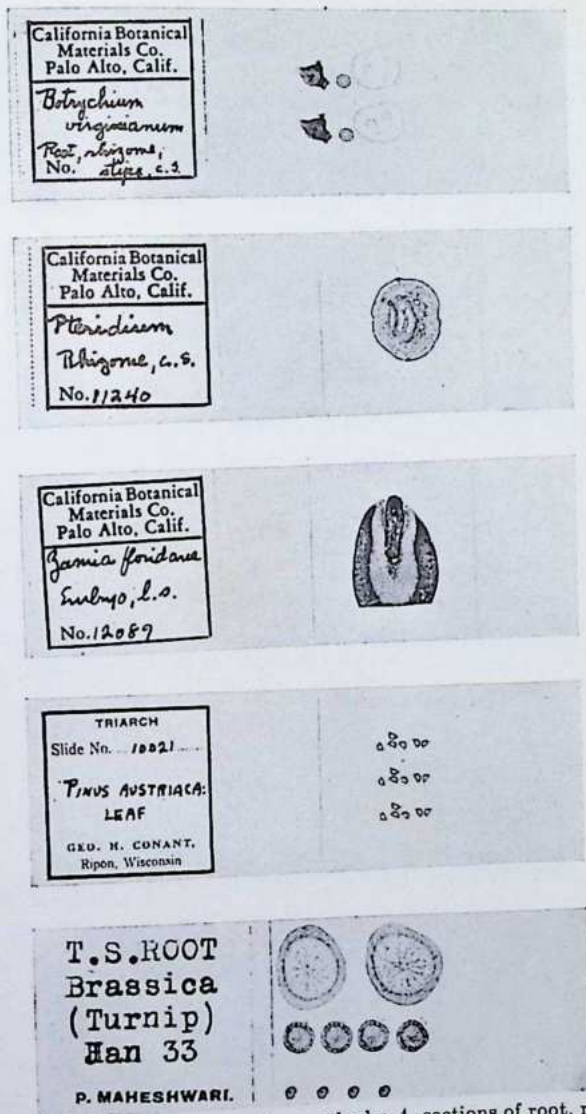 California Botanical
Materials Co.
Palo Alto, Calif.
Botrychium
virginianum
Root, rhizome,
No. stipe, c.s.
California Botanical
Materials Co.
Palo Alto, Calif.
Pteridium
Rhizome, c.s.
No. 11240
California Botanical
Materials Co.
Palo Alto, Calif.
Zamia floridana
Embryo, l.s.
No. 12089
TRIARCH
Slide No. 10021
PINUS AUSTRIACA:
LEAF
GEO. H. CONANT,
Ripon, Wisconsin
T.S.ROOT
Brassica
(Turnip)
Jan 33
P. MAHESHWARI.
sections of root,